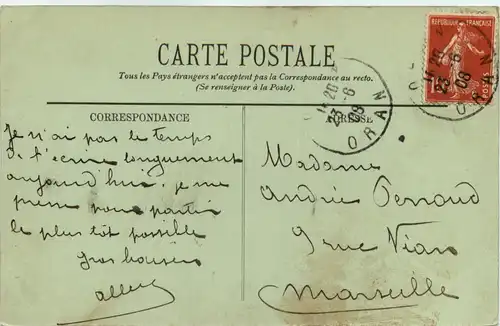 CARTE POSTALE
Tous les Pays étrangers n'acceptent pas la Correspondance au recto.
(Se renseigner à la Poste).
RÉPUBLIQUE FRANÇAISE
POSTES
ORAN
23-6
08
ORAN
23-6
08
CORRESPONDANCE
ADRESSE
Je n'ai pas le temps
de t'écrire longuement
aujourd'hui, je me
presse pour partir
le plus tôt possible
Gros baisers
Madame
André
9 rue
Marseille